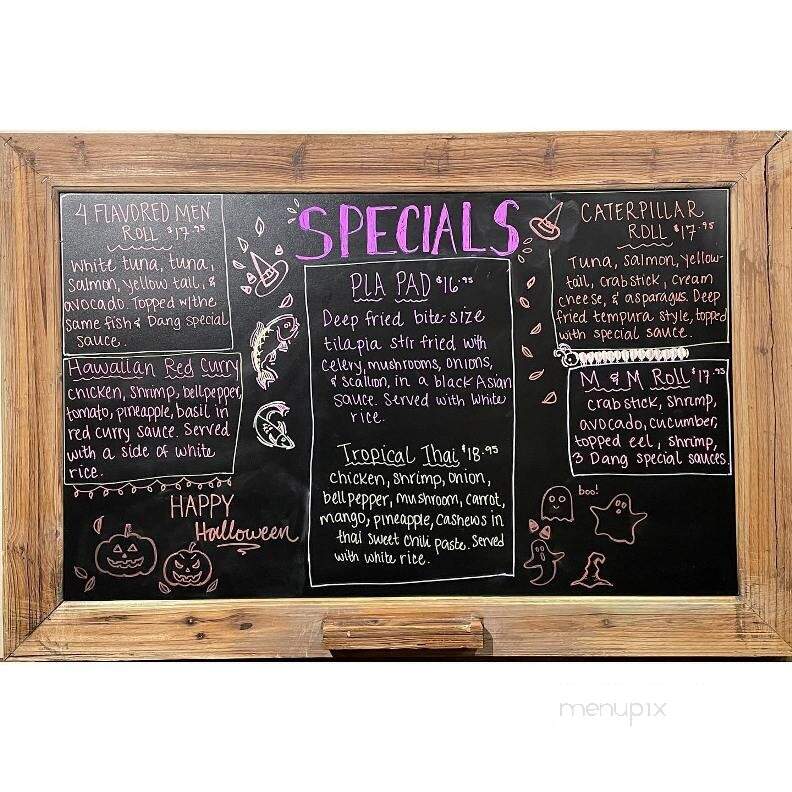 4 FLAVORED MEN
ROLL $17.95
White tuna, tuna,
Salmon, yellow tail, &
avocado Topped w/the
same fish & Dang special
sauce.
Hawaiian Red Curry
chicken, shrimp, bellpepper,
tomato, pineapple, basil in
red curry sauce. Served
with a side of white
rice.
HAPPY
Halloween
SPECIALS
PLA PAD $16.95
Deep fried bite-size
tilapia stir fried with
celery, mushrooms, onions,
& scallion, in a black Asian
sauce. Served with white
rice.
Tropical Thai $18.95
chicken, shrimp, onion,
bellpepper, mushroom, carrot,
mango, pineapple, cashews in
thai sweet chili paste. Served
with white rice.
CATERPILLAR
ROLL $17.95
Tuna, salmon, yellow-
tail, crabstick, cream
cheese, & asparagus. Deep
fried tempura style, topped
with special sauce.
M & M Roll $17.95
crabstick, shrimp,
avocado, cucumber,
topped eel, shrimp,
3 Dang special sauces
boo!
menupix